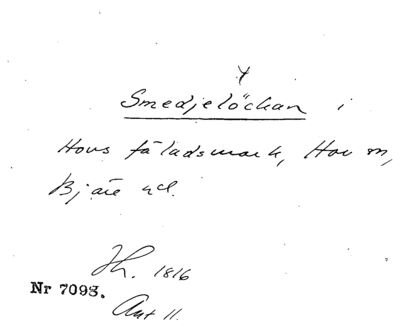 Smedjelöckan i
Hovs fäladsmark, Hov sn,
Bjäre hd.
Th. 1816
Nr 7093.
Ant 11.